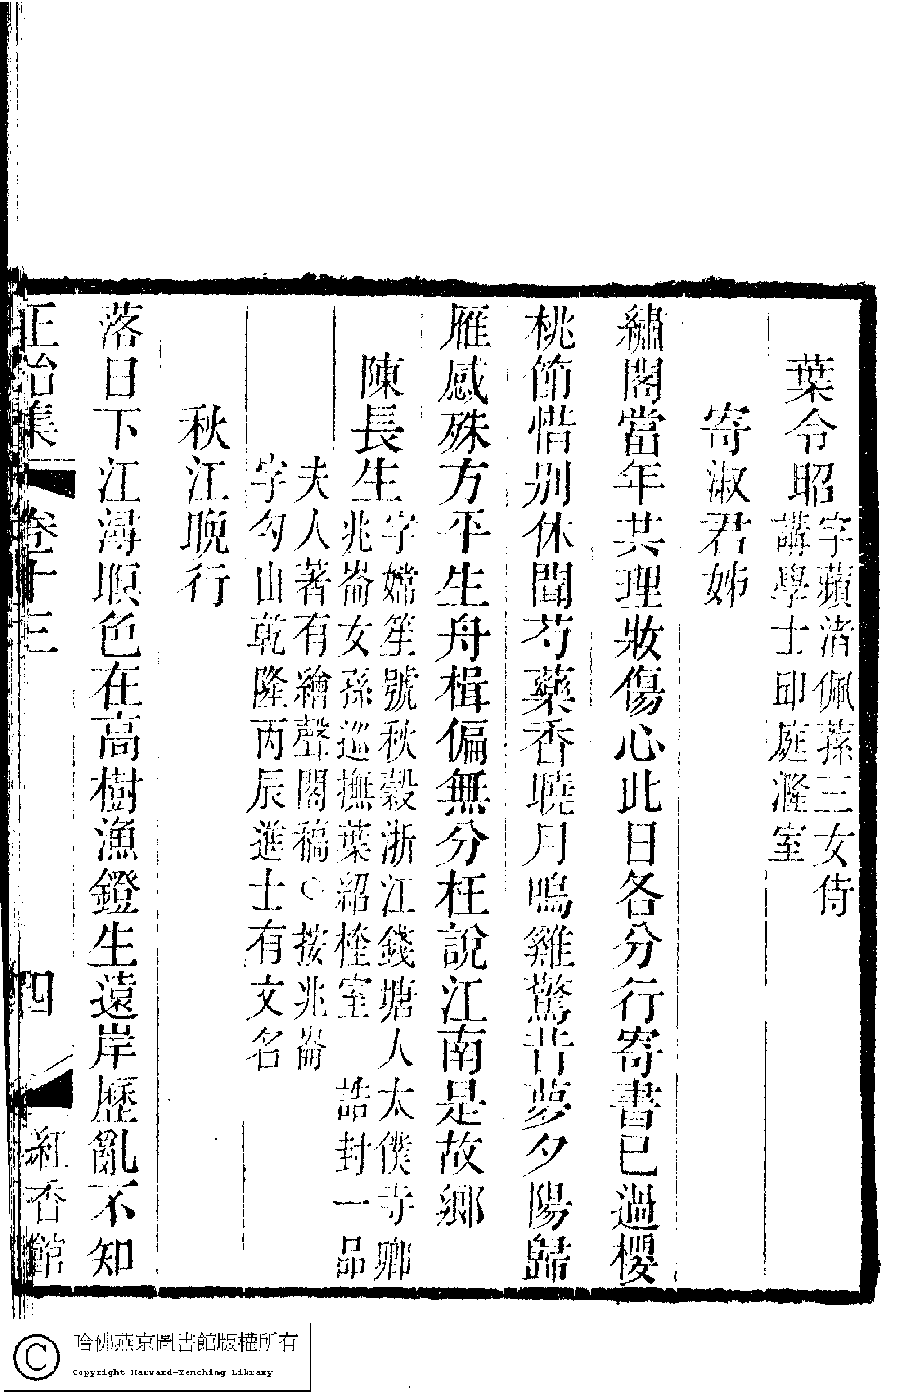 葉令昭字蘋渚佩蓀三女侍
講學士邱庭漋室
寄淑君姊
繡閣當年共理妝傷心此日各分行寄書已過櫻
桃節惜別休聞芍藥香曉月鳴雞驚昔夢夕陽歸
雁感殊方平生舟楫偏無分枉說江南是故鄉
陳長生字嫦笙號秋穀浙江錢塘人太僕寺卿
兆崙女孫巡撫葉紹楏室 誥封一品
夫人著有繪聲閣稿○按兆崙
字勾山乾隆丙辰進士有文名
秋江晚行
落日下江潯暝色在高樹漁鐙生遠岸歷亂不知
正始集 卷十三 四 紅香館
哈佛燕京圖書館版權所有
Copyright Harvard-Yenching Library